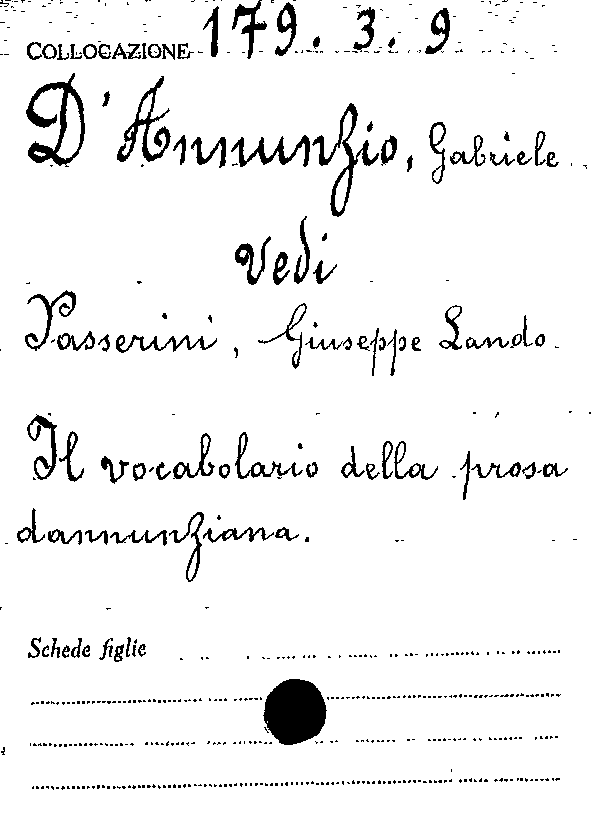 COLLOCAZIONE 179. 3. 9
D'Annunzio, Gabriele
Vedi
Passerini, Giuseppe Lando.
Il vocabolario della prosa
dannunziana.
Schede figlie